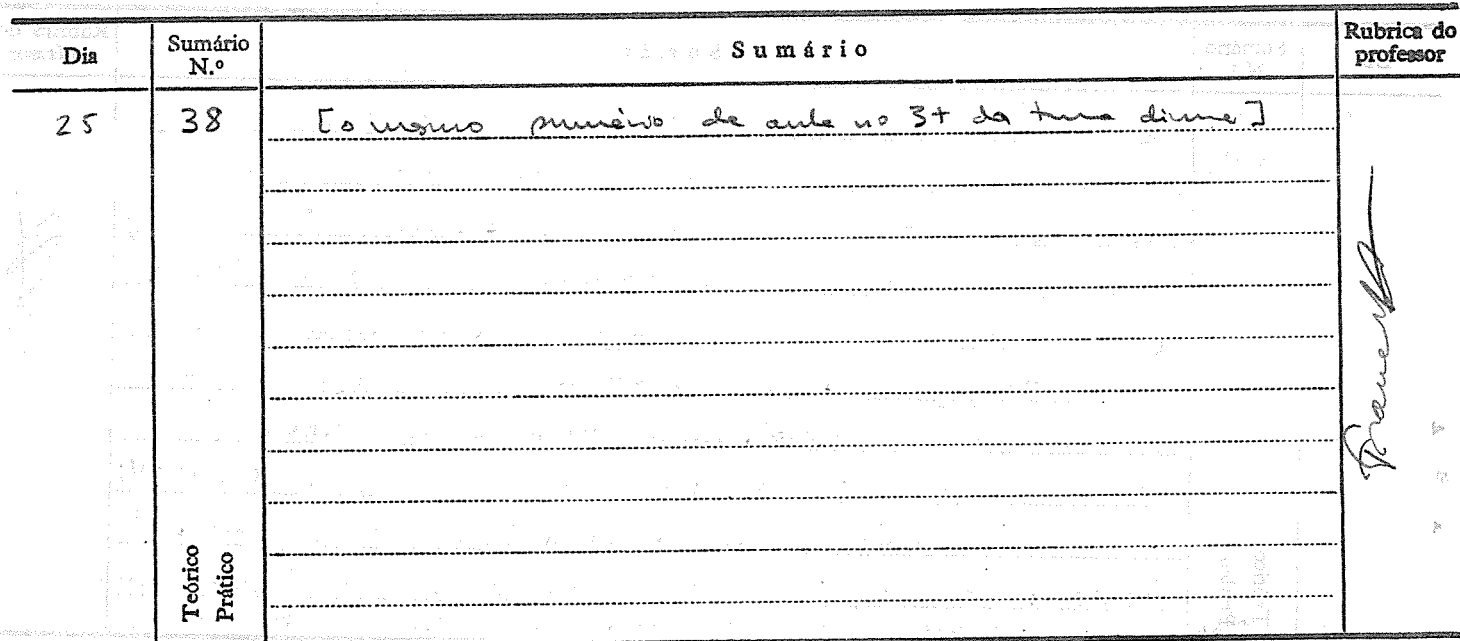 Dia
Sumário N.º
Sumário
Rubrica do professor
25
38
[o mesmo sumário da aula nº 37 da turma diurna]
Teórico
Prático